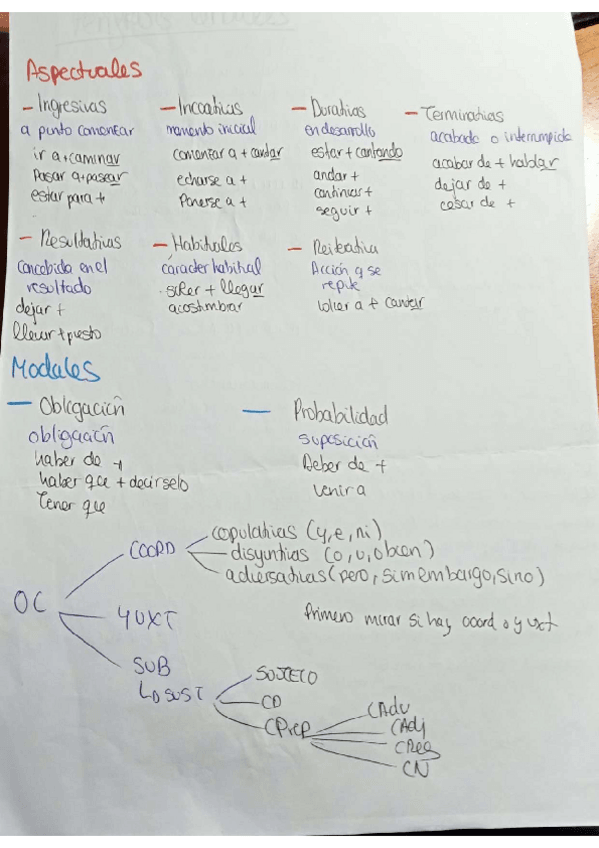 Aspectuales
- Ingresivas
a punto comenzar
ir a + caminar
Pasar a + pasear
estar para +
- Incoativas
momento inicial
comenzar a + cantar
echarse a +
Ponerse a +
- Durativas
en desarrollo
estar + cantando
andar +
continuar +
seguir +
- Terminativas
acabado o interrumpido
acabar de + hablar
dejar de +
cesar de +
- Resultativas
Concebida en el
resultado
dejar +
llevar + puesto
- Habituales
carácter habitual
soler + llegar
acostumbrar
- Reiterativa
Acción q se
repite
volver a + cantar
Modales
- Obligación
obligación
haber de +
haber que + decirselo
Tener que
- Probabilidad
suposición
Deber de +
venir a
OC
COORD
copulativas (y, e, ni)
disyuntivas (o, u, o bien)
adversativas (pero, sim embargo, sino)
YUXT
Primero mirar si hay coord o yuxt
SUB
↳ SUST
SUJETO
CD
CPrep
CAdv
CAdj
CReg
CN